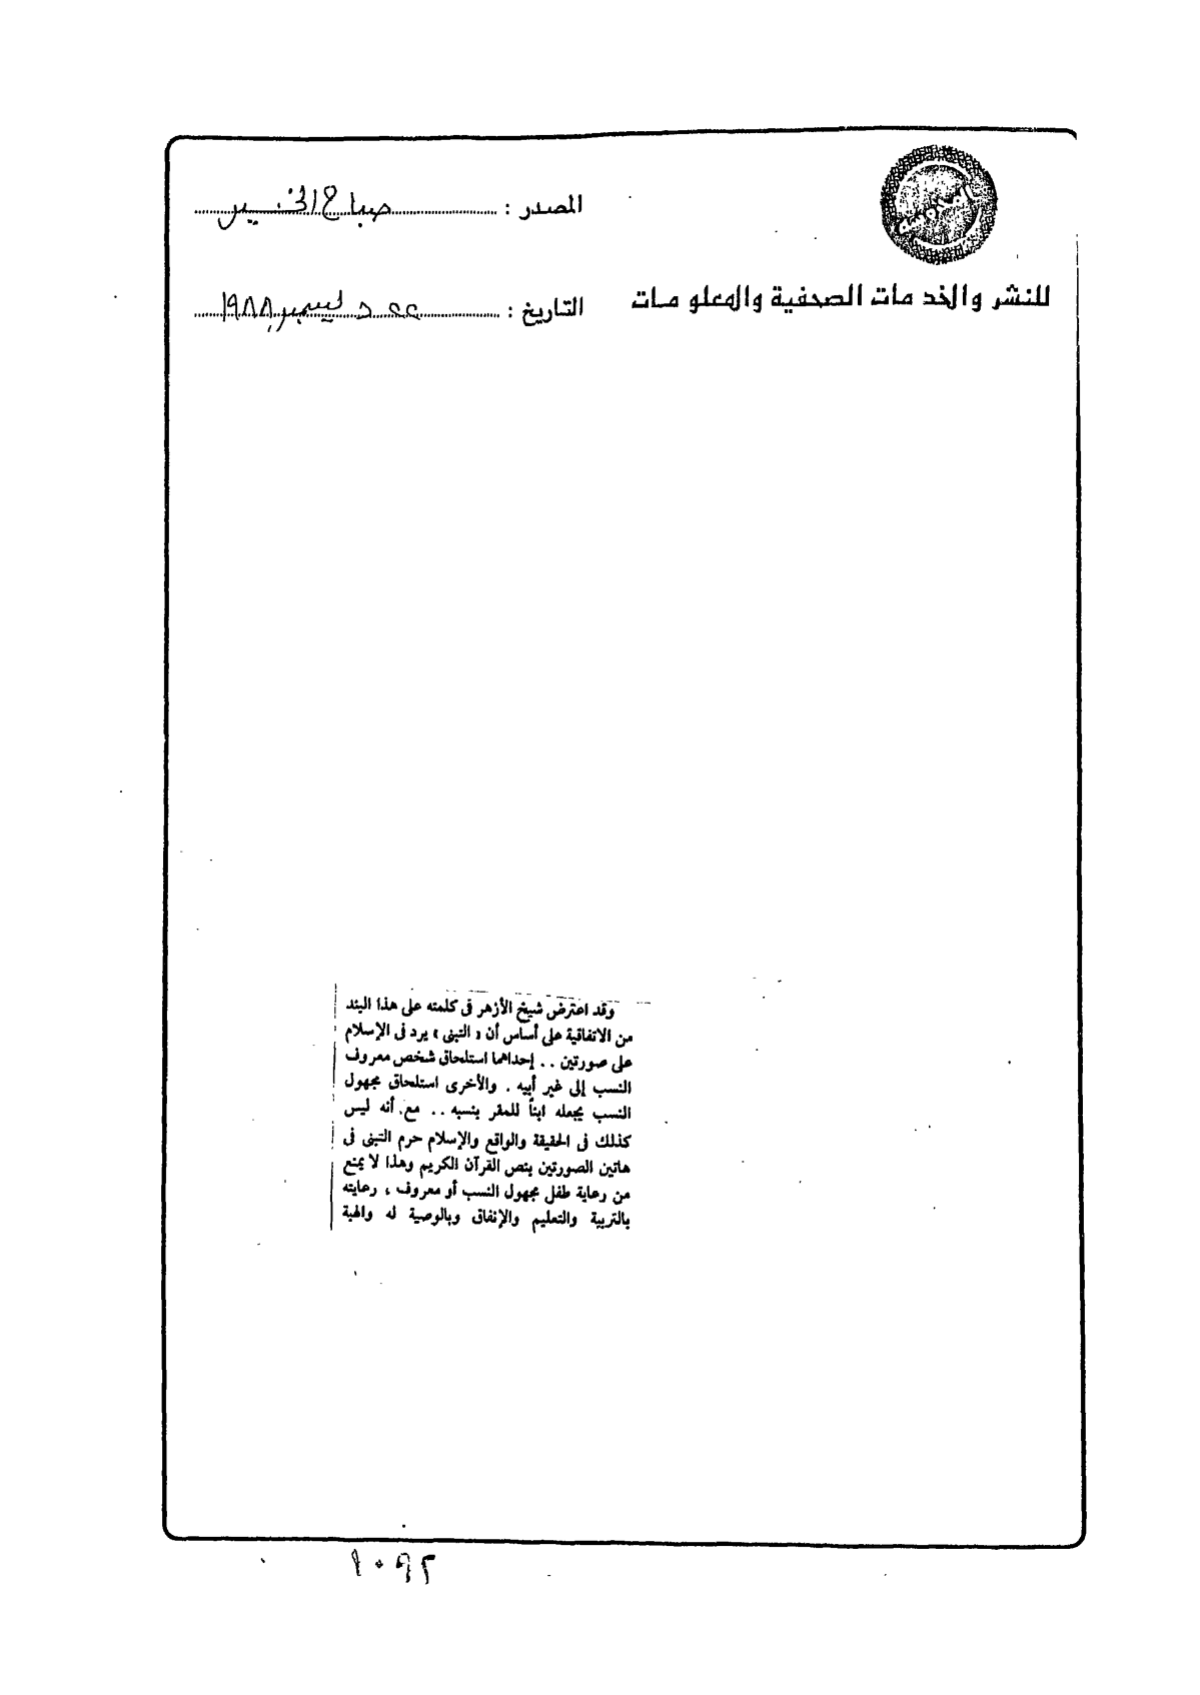 المصدر : صباح الخير
للنشر والخدمات الصحفية والمعلومات
التاريخ : ٢٢ ديسمبر ١٩٨٨
وقد اعترض شيخ الأزهر فى كلمته على هذا البند
من الاتفاقية على أساس أن « التبنى » يرد فى الإسلام
على صورتين .. إحداهما استلحاق شخص معروف
النسب إلى غير أبيه . والأخرى استلحاق مجهول
النسب يجعله ابناً للمقر بنسبه .. مع أنه ليس
كذلك فى الحقيقة والواقع والإسلام حرم التبنى فى
هاتين الصورتين بنص القرآن الكريم وهذا لا يمنع
من رعاية طفل مجهول النسب أو معروف ، رعايته
بالتربية والتعليم والإنفاق وبالوصية له والهبة